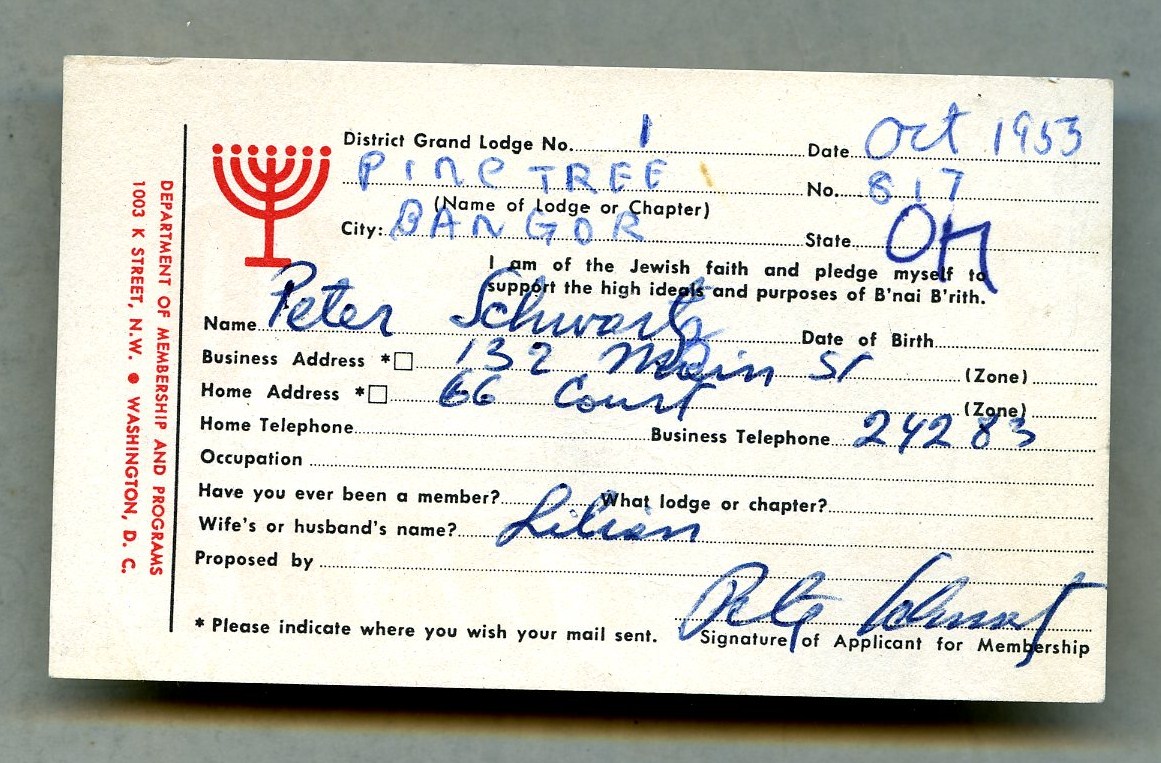 District Grand Lodge No. 1 Date Oct 1953
PINE TREE No. 817
(Name of Lodge or Chapter)
City: BANGOR State OH
I am of the Jewish faith and pledge myself to
support the high ideals and purposes of B'nai B'rith.
Name Peter Schwartz Date of Birth
Business Address *☐ 132 Main St (Zone)
Home Address *☐ 66 Court (Zone)
Home Telephone Business Telephone 24283
Occupation
Have you ever been a member? What lodge or chapter?
Wife's or husband's name? Lilian
Proposed by
* Please indicate where you wish your mail sent.
Signature of Applicant for Membership
DEPARTMENT OF MEMBERSHIP AND PROGRAMS
1003 K STREET, N.W. ● WASHINGTON, D. C.